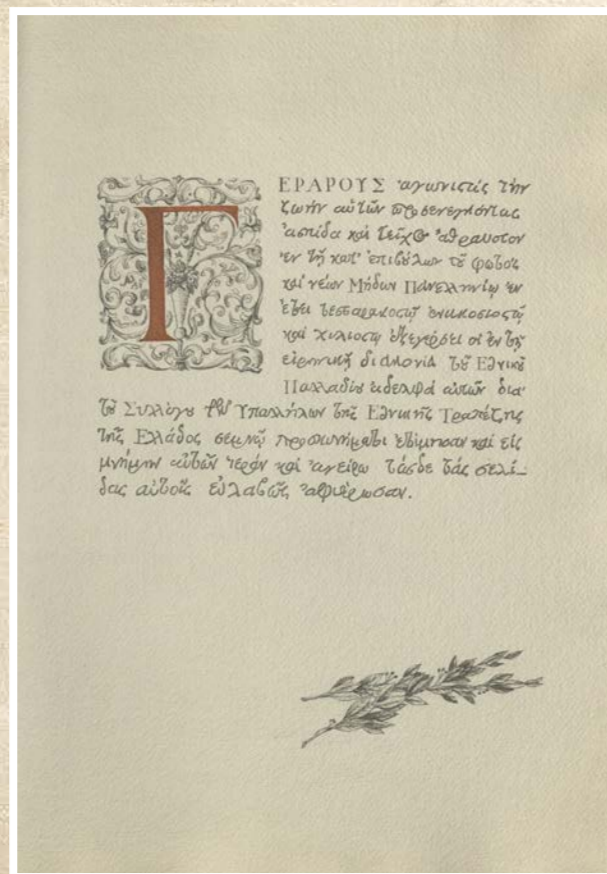 ΓΕΡΑΡΟΥΣ ἀγωνιστὰς τὴν
ζωὴν αὐτῶν προσενεγκόντας
ἀσπίδα καὶ τεῖχος ἄθραυστον
ἐν τῇ κατ' ἐπιβούλων τοῦ φωτὸς
καὶ νέων Μήδων Πανελληνίῳ ἐν
ἔτει τεσσαρακοστῷ ἐνακοσιοστῷ
καὶ χιλιοστῷ ἐξεγέρσει οἱ ἐν τῇ
εἰρηνικῇ διακονίᾳ τοῦ Ἐθνικοῦ
Παλλαδίου ἀδελφοὶ αὐτῶν διὰ
τοῦ Συλλόγου τῶν Ὑπαλλήλων τῆς Ἐθνικῆς Τραπέζης
τῆς Ἑλλάδος σεμνῷ προσωνήματι ἐτίμησαν καὶ εἰς
μνήμην αὐτῶν ἱερὰν καὶ ἀγείρω τάσδε τὰς σελί-
δας αὐτοῖς εὐλαβῶς ἀφιέρωσαν.